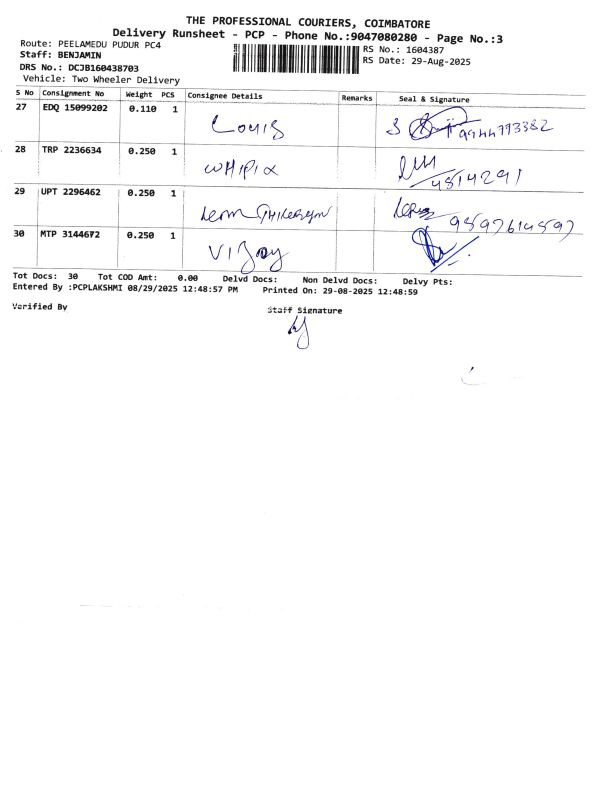 THE PROFESSIONAL COURIERS, COIMBATORE
Delivery Runsheet - PCP - Phone No.:9047080280 - Page No.:3
Route: PEELAMEDU PUDUR PC4
Staff: BENJAMIN
DRS No.: DCJB160438703
Vehicle: Two Wheeler Delivery
RS No.: 1604387
RS Date: 29-Aug-2025
S No Consignment No Weight PCS Consignee Details Remarks Seal & Signature
27 EDQ 15099202 0.110 1 Louis 9944793382
28 TRP 2236634 0.250 1 4814291
29 UPT 2296462 0.250 1 9597614597
30 MTP 3144672 0.250 1 VIJAY
Tot Docs: 30 Tot COD Amt: 0.00 Delvd Docs: Non Delvd Docs: Delvy Pts:
Entered By :PCPLAKSHMI 08/29/2025 12:48:57 PM Printed On: 29-08-2025 12:48:59
Verified By Staff Signature